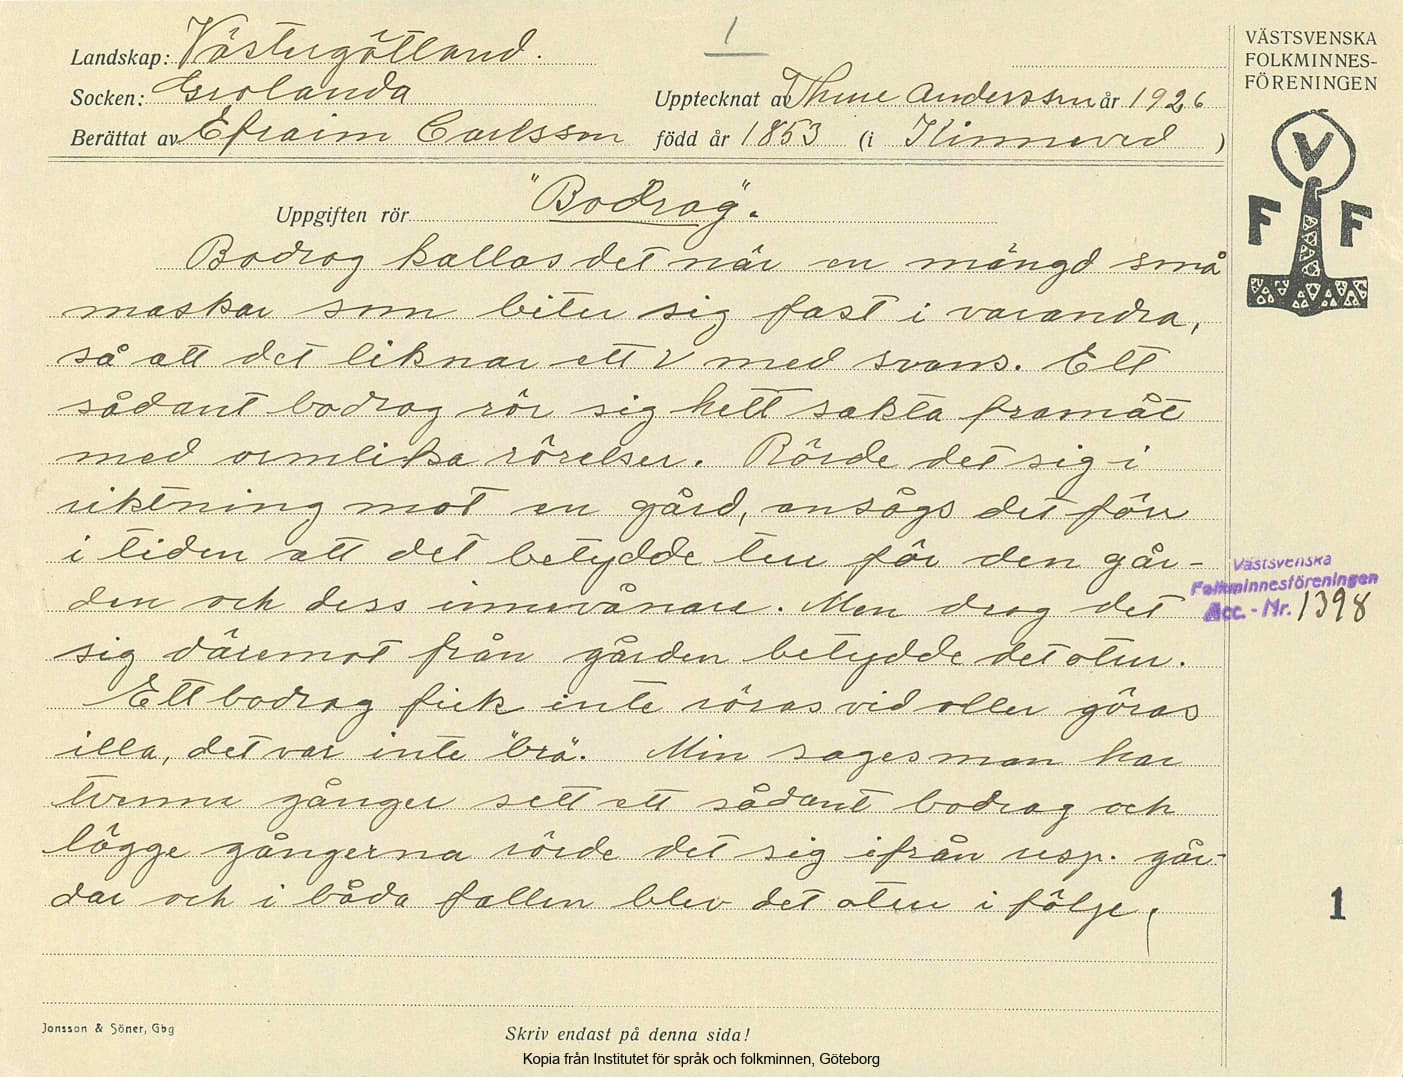 1
Landskap: Västergötland.
Socken: Grolanda
Upptecknat av Thure Andersson år 1926
Berättat av Efraim Carlsson född år 1853 (i Kinneved )
VÄSTSVENSKA
FOLKMINNES-
FÖRENINGEN
V
F F
Uppgiften rör "Bodrag".
Bodrag kallas det när en mängd små
maskar som biter sig fast i varandra,
så att det liknar ett V med svans. Ett
sådant bodrag rör sig helt sakta framåt
med ormlika rörelser. Rörde det sig i
riktning mot en gård, ansågs det förr
i tiden att det betydde tur för den går-
den och dess innevånare. Men drog det
sig däremot från gården betydde det otur.
Ett bodrag fick inte röras vid eller göras
illa, det var inte "brä". Min sagesman har
tvenne gånger sett ett sådant bodrag och
bägge gångerna rörde det sig ifrån resp. går-
dar och i båda fallen blev det otur i följe.
Västsvenska
Folkminnesföreningen
Acc. - Nr. 1398
1
Jonsson & Söner, Gbg
Skriv endast på denna sida!
Kopia från Institutet för språk och folkminnen, Göteborg